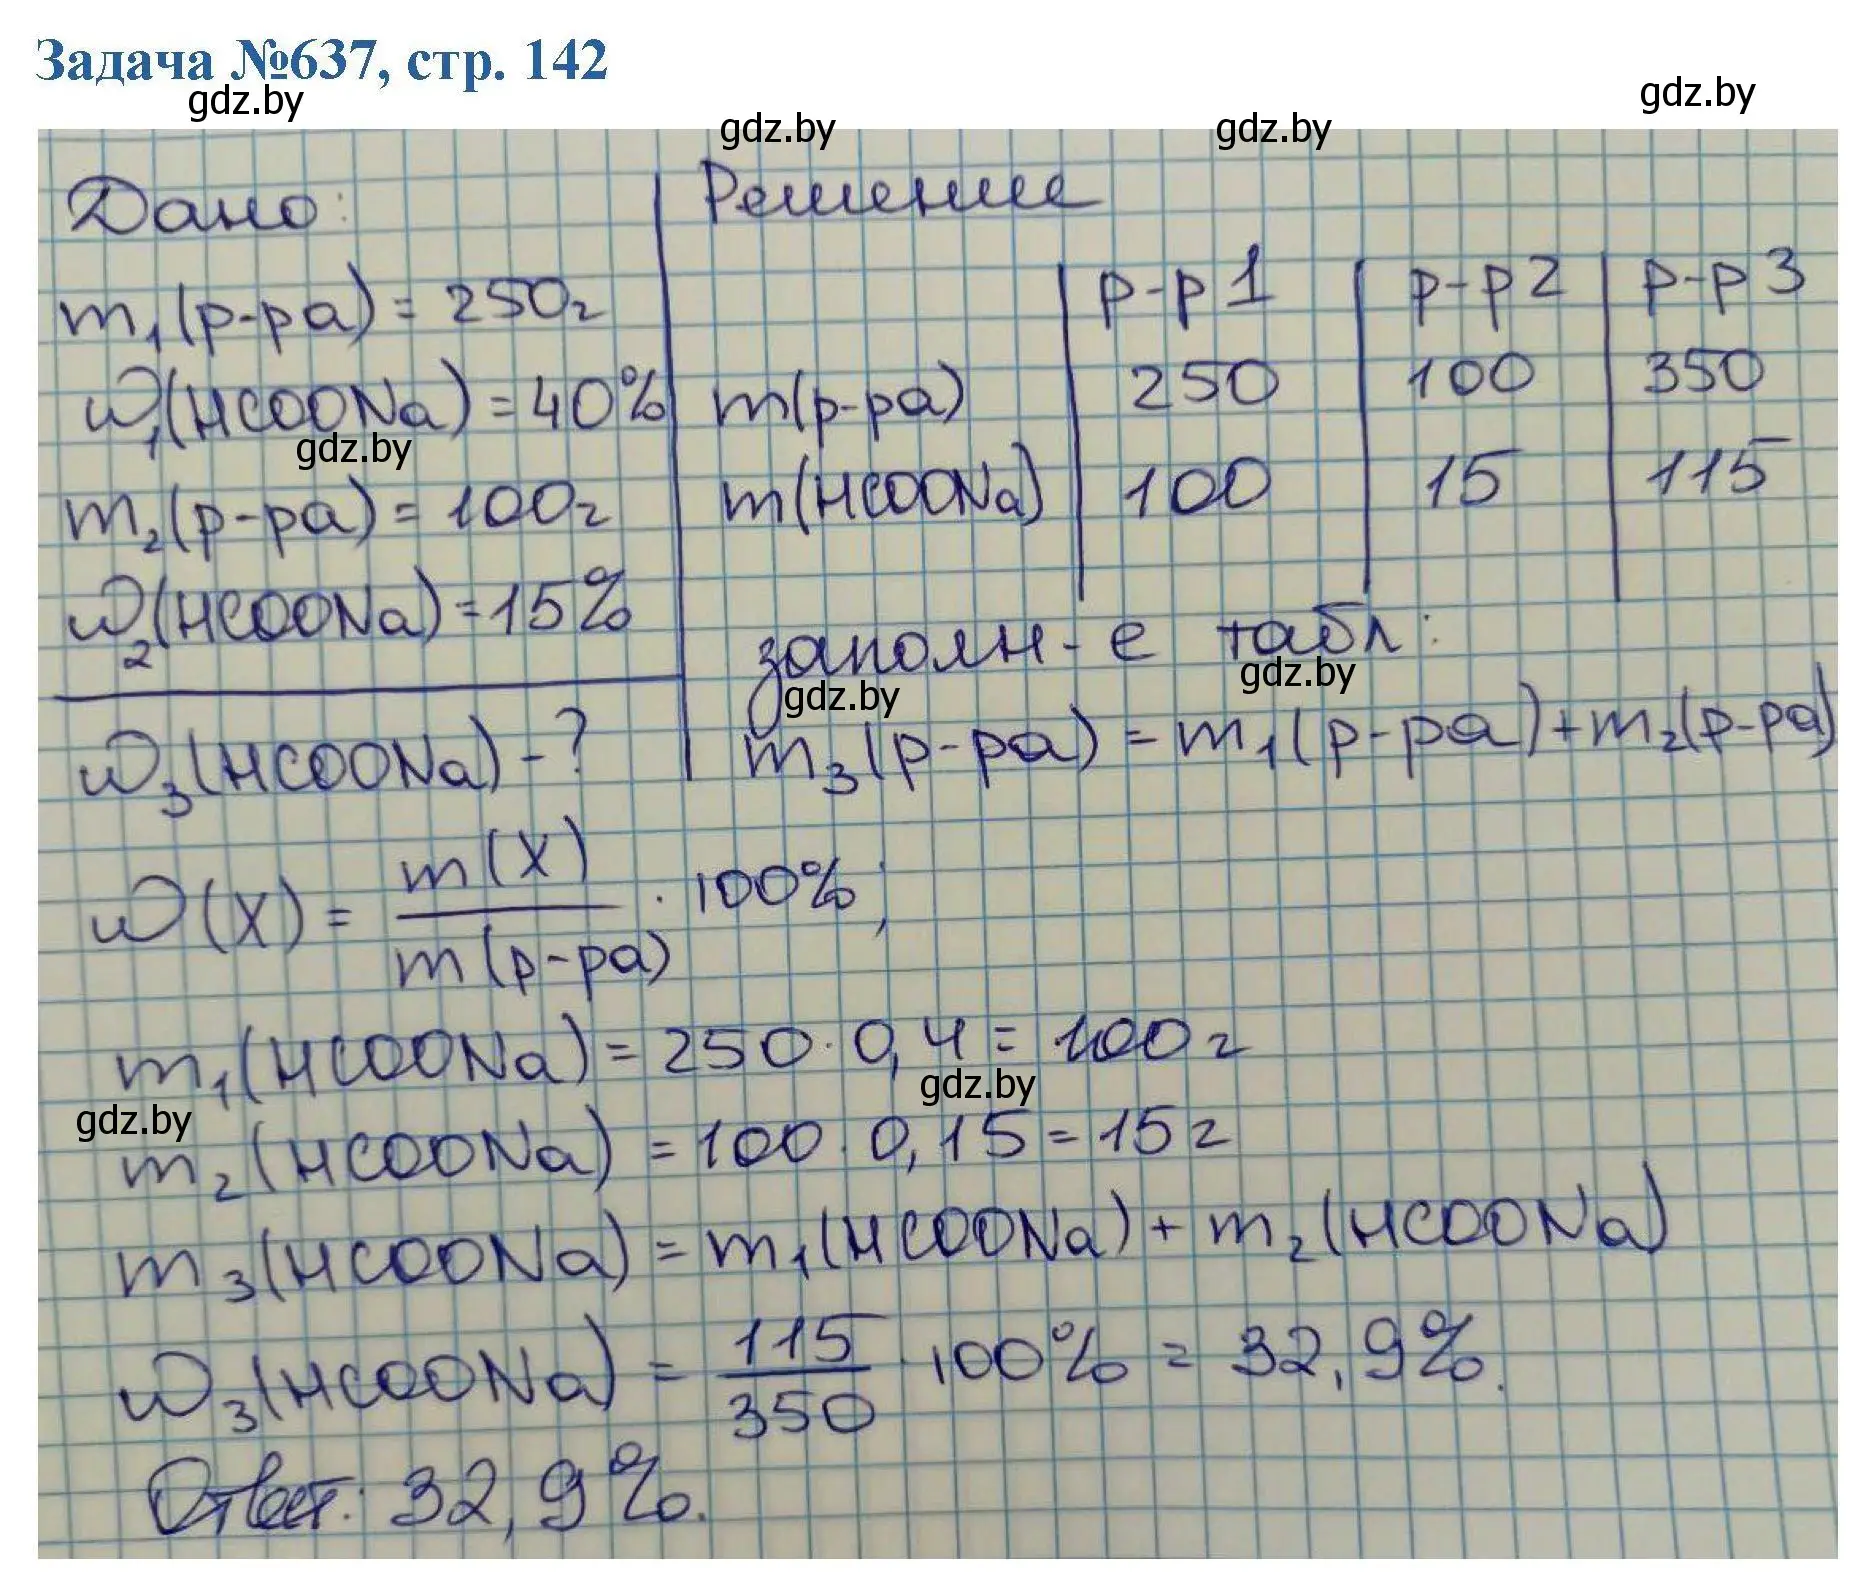 Задача №637, стр. 142
gdz.by
gdz.by gdz.by gdz.by
Дано:
m₁(р-ра) = 250г
ω₁(HCOONa) = 40%
gdz.by
m₂(р-ра) = 100г
ω₂(HCOONa) = 15%
ω₃(HCOONa) - ?
Решение
р-р 1 р-р 2 р-р 3
m(р-ра) 250 100 350
m(HCOONa) 100 15 115
заполн-е табл:
gdz.by gdz.by
m₃(р-ра) = m₁(р-ра) + m₂(р-ра)
ω(X) = m(X) / m(р-ра) · 100%;
m₁(HCOONa) = 250 · 0,4 = 100г
gdz.by gdz.by
m₂(HCOONa) = 100 · 0,15 = 15г
m₃(HCOONa) = m₁(HCOONa) + m₂(HCOONa)
ω₃(HCOONa) = 115 / 350 · 100% = 32,9%.
Ответ: 32,9%.